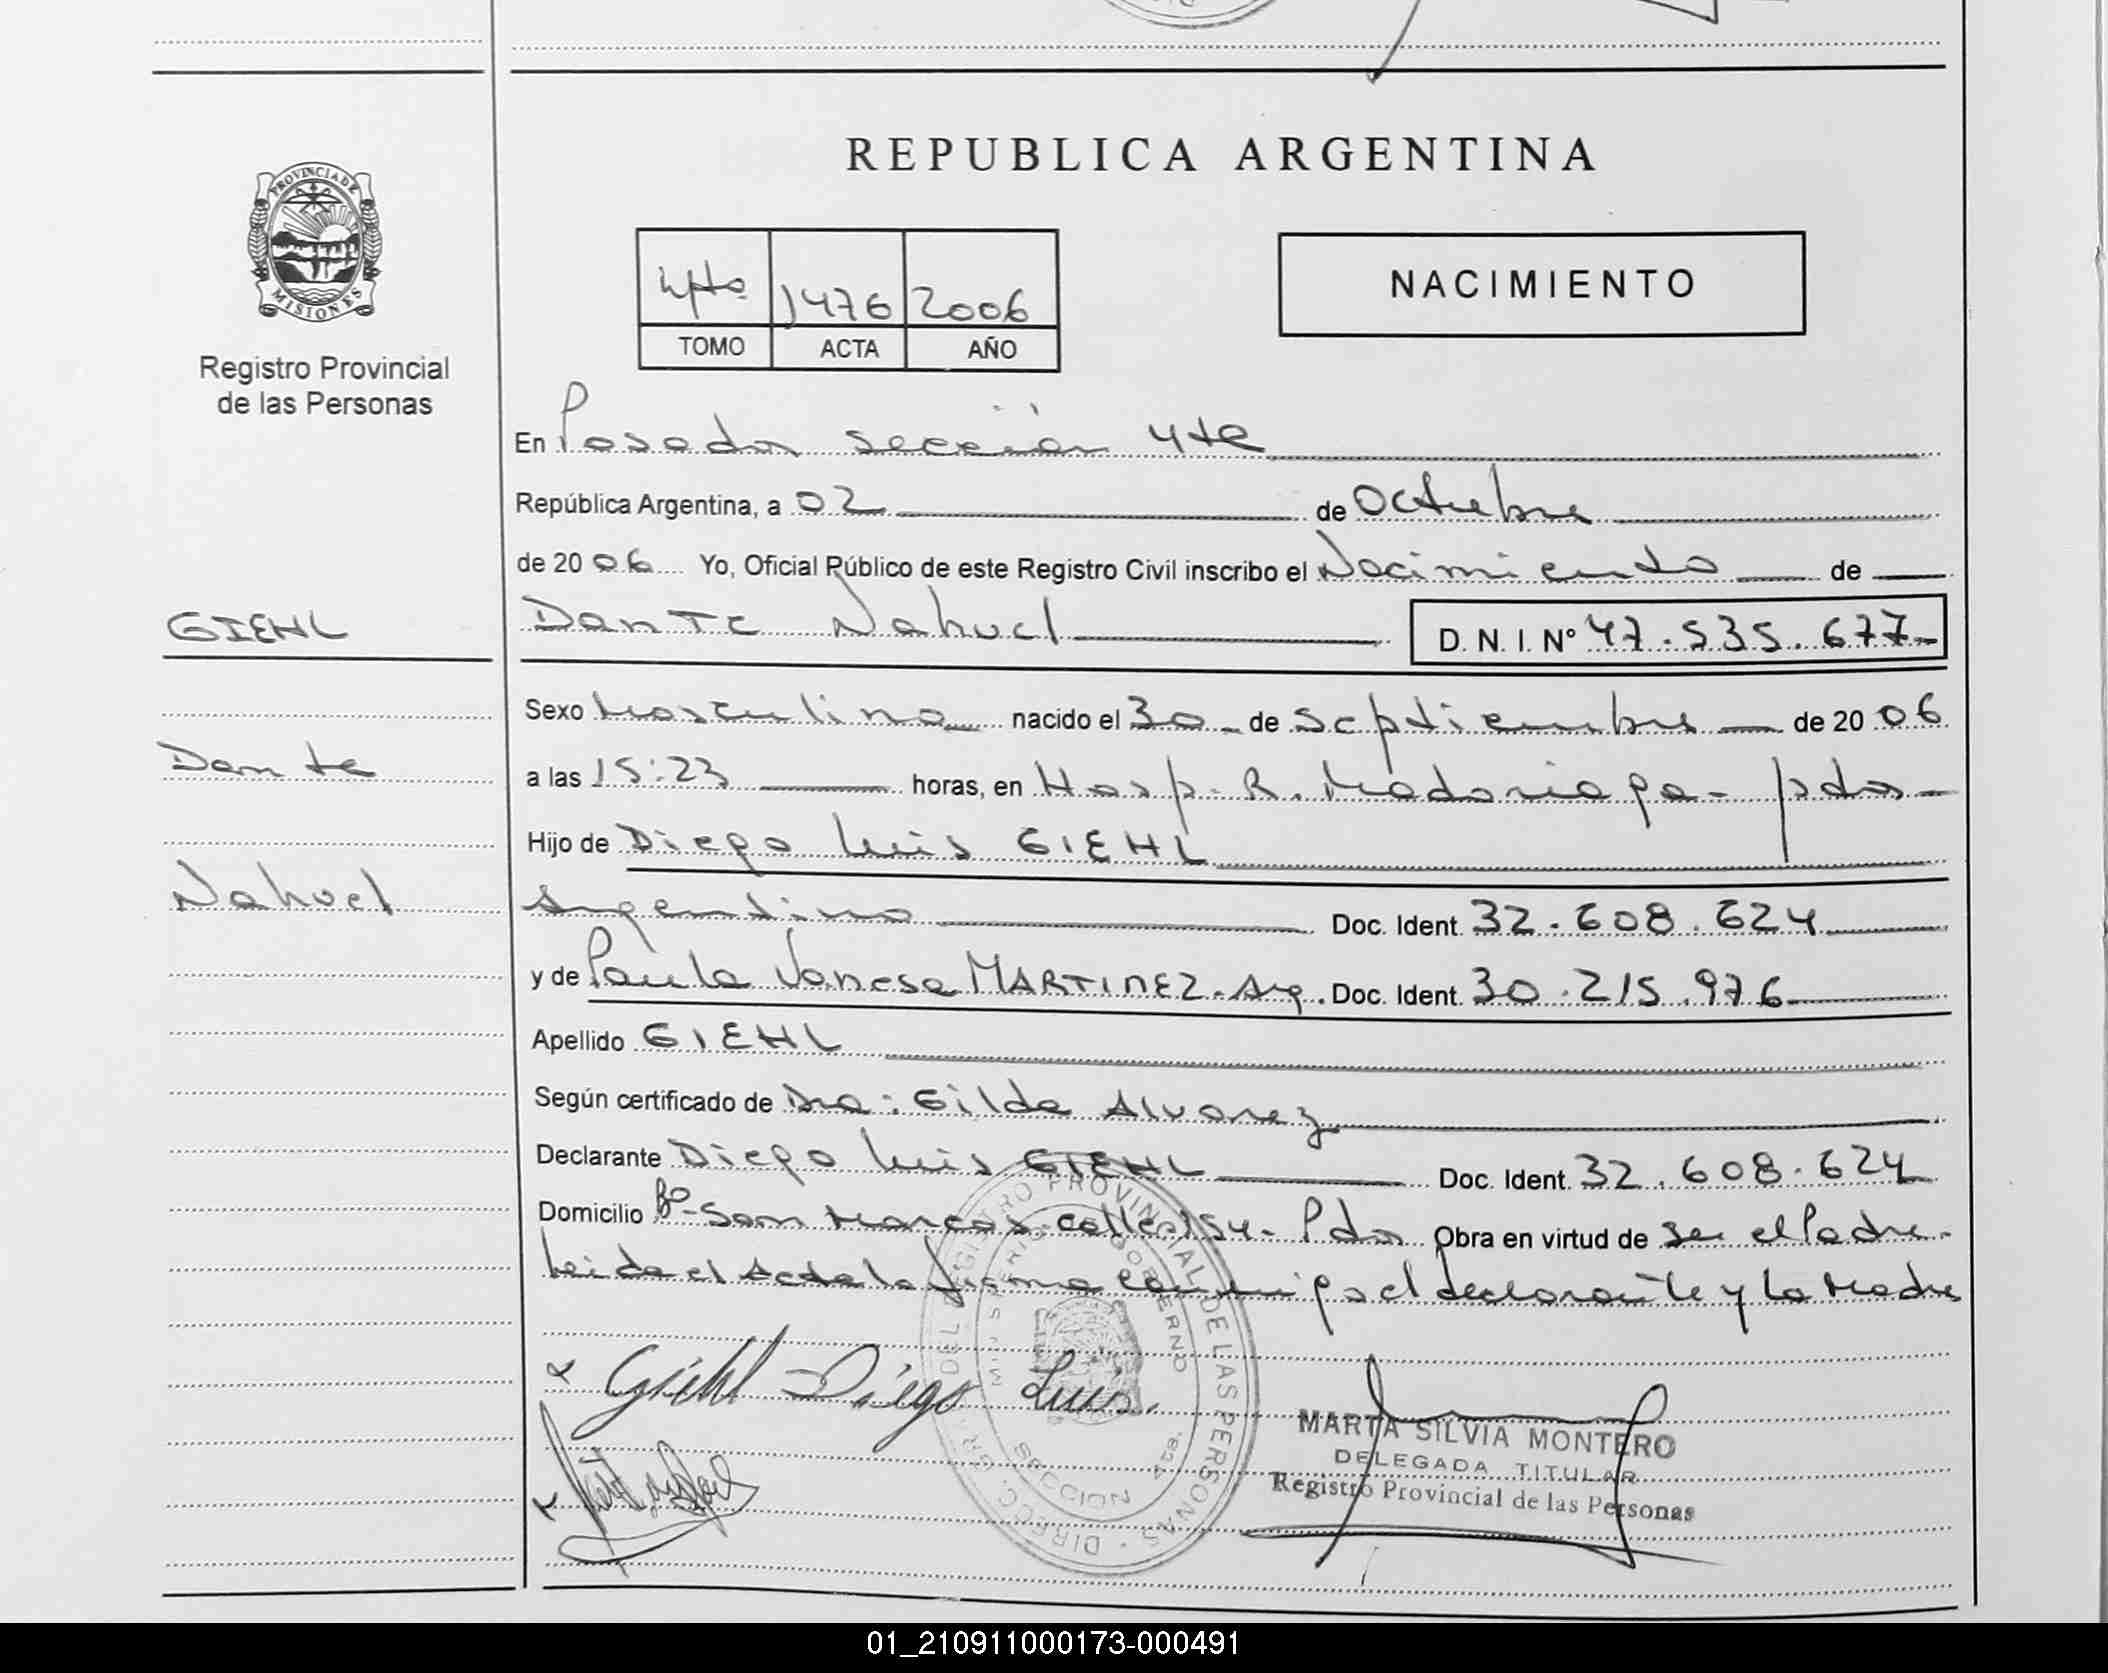 REPUBLICA ARGENTINA
PROVINCIA DE
MISIONES
Registro Provincial
de las Personas
4to 1476 2006
TOMO ACTA AÑO
NACIMIENTO
En Posadas sección 4ta
República Argentina, a 02 de Octubre
de 2006 Yo, Oficial Público de este Registro Civil inscribo el Nacimiento de
GIEHL
Dante Nahuel D. N. I. Nº 47.535.677-
Sexo Masculino nacido el 30 de Septiembre de 2006
Dante
a las 15:23 horas, en Hosp. R. Madariaga - pdas -
Hijo de Diego Luis GIEHL
Nahuel
Argentino Doc. Ident. 32.608.624
y de Paula Vanesa MARTINEZ - Arg. Doc. Ident. 30.215.976
Apellido GIEHL
Según certificado de Dra: Gilda Alvarez
Declarante Diego Luis GIEHL Doc. Ident. 32.608.624
Domicilio Bº San Marcos - calle 154 - Pdas Obra en virtud de ser el Padre.
Leida el Acta la firma conmigo el declarante y la Madre
Giehl Diego Luis.
DIREC. GR. DEL REGISTRO PROVINCIAL DE LAS PERSONAS
MINISTERIO GOBIERNO
SECCION 4ta.
MARTA SILVIA MONTERO
DELEGADA TITULAR
Registro Provincial de las Personas
01_210911000173-000491